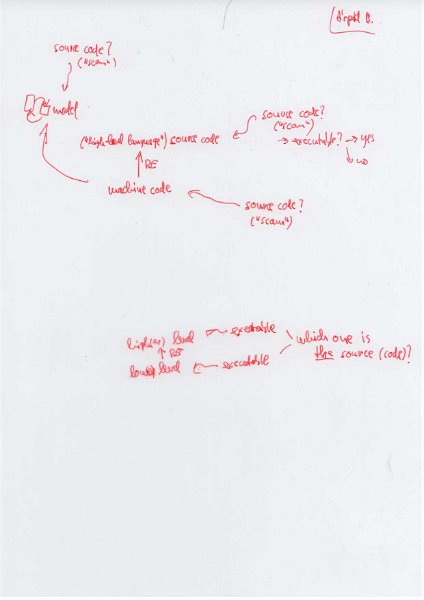 source code?
("scan")
model
source code?
("scan")
("high-level language") source code
→ executable? → yes
↓ no
↑ RE
machine code
source code?
("scan")
high(er) level
executable
↑ RE
lower level
executable
which one is
the source (code)?